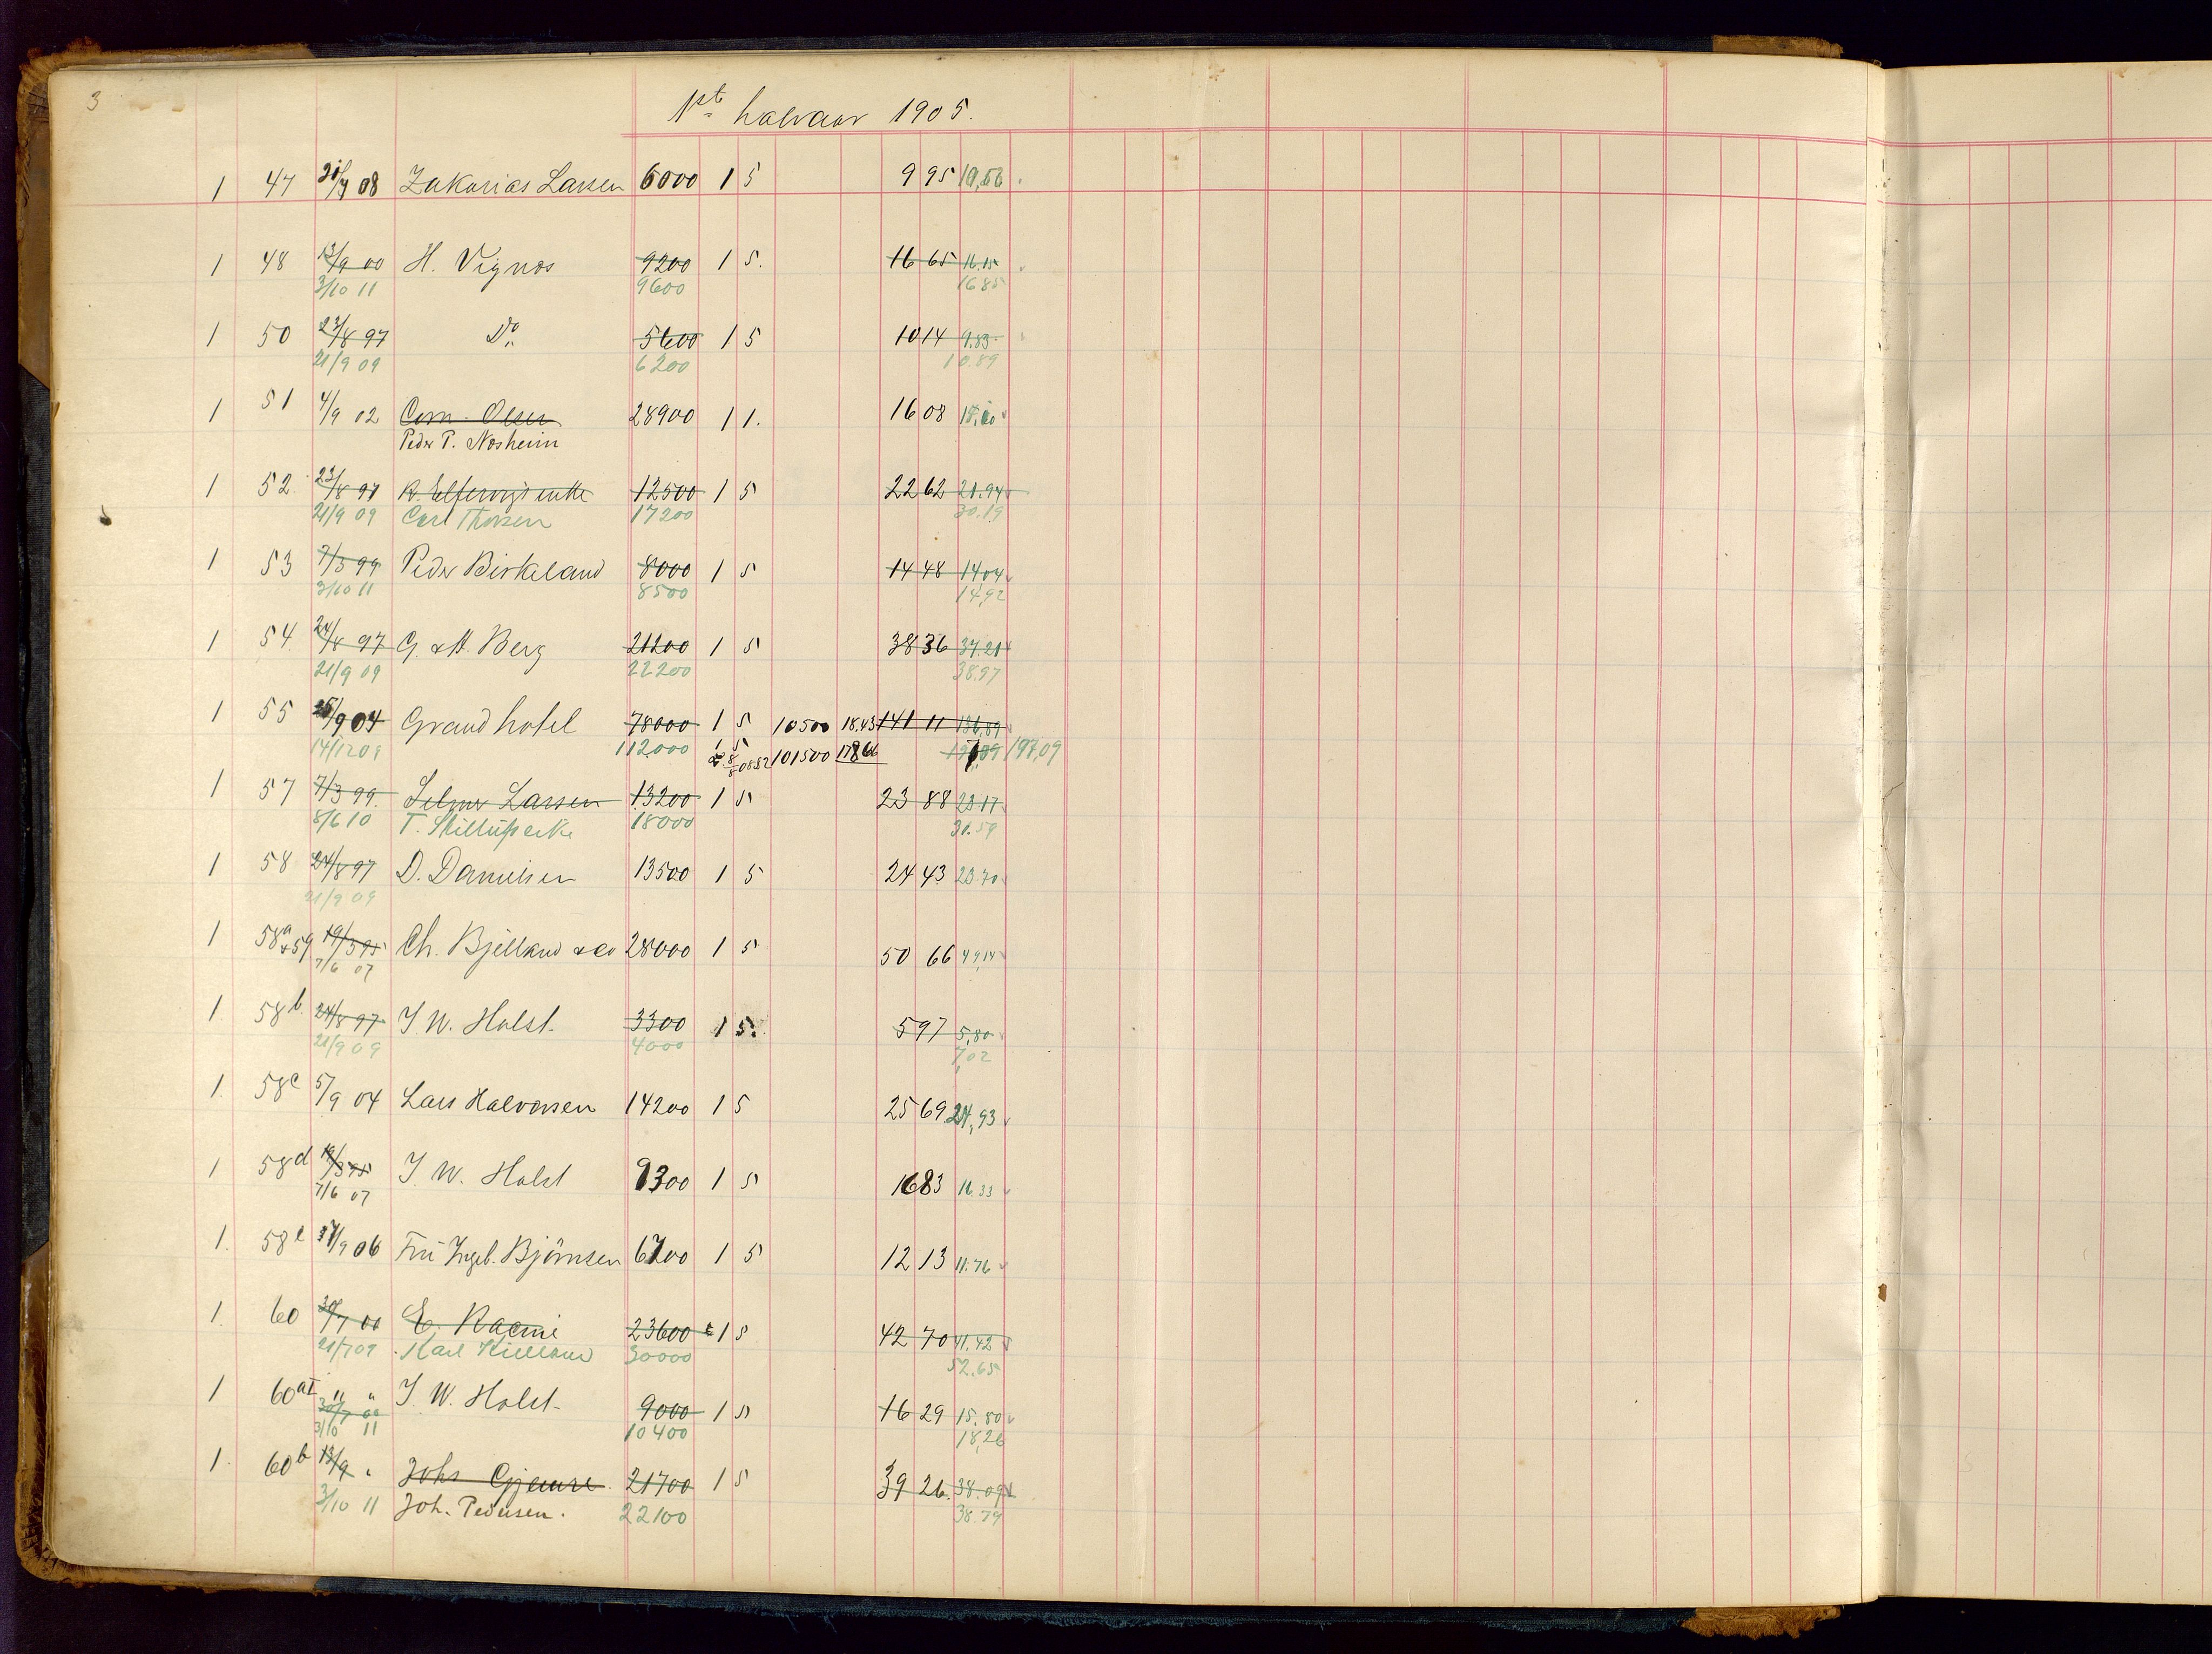 3
1st halvaar 1905.
1 47 08 Zakarias Larsen 6000 1 5 9 95 10,56
1 48 13/9 00 H. Vignæs 9200 1 5. 16 65 16.15
3/10 11 9600 16.85
1 50 23/8 97 Do 5600 1 5 10 14 9.83
21/9 09 6200 10.89
1 51 4/9 02 Corn. Olsen 28900 1 1. 16 08
Peder P. Nosheim
1 52 23/8 97 12500 1 5 22 62 21.94
21/9 09 Carl Thorsen 17200 30.19
1 53 7/3 99 Peder Birkeland 8000 1 5 14 48 14,04
3/10 11 8500 14,92
1 54 24/8 97 G. & M. Berg 21200 1 5 38 36 37.21
21/9 09 22200 38.97
1 55 9 04 Grand hotel 78000 1 5 10500 18.43 141 11 136,89
14/12 09 112000 1 5 101500 178 66 197,09
1 57 7/3 99. Larsen 13200 1 5 23 88 23.17
8/6 10 T. 18000 31.59
1 58 24/8 97 D. Danielsen 13500 1 5 24 43 23.70
21/9 09
1 58a & 59 19/3 95 Ch. Bjelland & Co 28000 1 5 50 66 49,14
7/6 07
1 58b. 24/8 97 J. W. Holst. 3300 1 5. 5 97 5,80
21/9 09 4000 7,02
1. 58c 5/9 04 Lars Halvorsen 14200 1 5 25 69 24,93
1 58d 19/3 95 J. W. Holst 9300 1 5 16 83 16.33
7/6 07
1. 58e 9 06 Fru Ingeb. Björnsen 6700 1 5 12 13 11.76
1. 60 30/7 00 E. Racine 23600 1 5 42 70 41,42
21/7 09 Karl Kielland 30000 52.65
1 60aI " " J. W. Holst. 9000 1 5 16 29 15.80
30/7 00
3/10 11 10400 18,26
1. 60b 13/9 " Johs Gjemre. 21700 1 5 39 26. 38.09
3/10 11 Joh. Pedersen. 22100 38.79